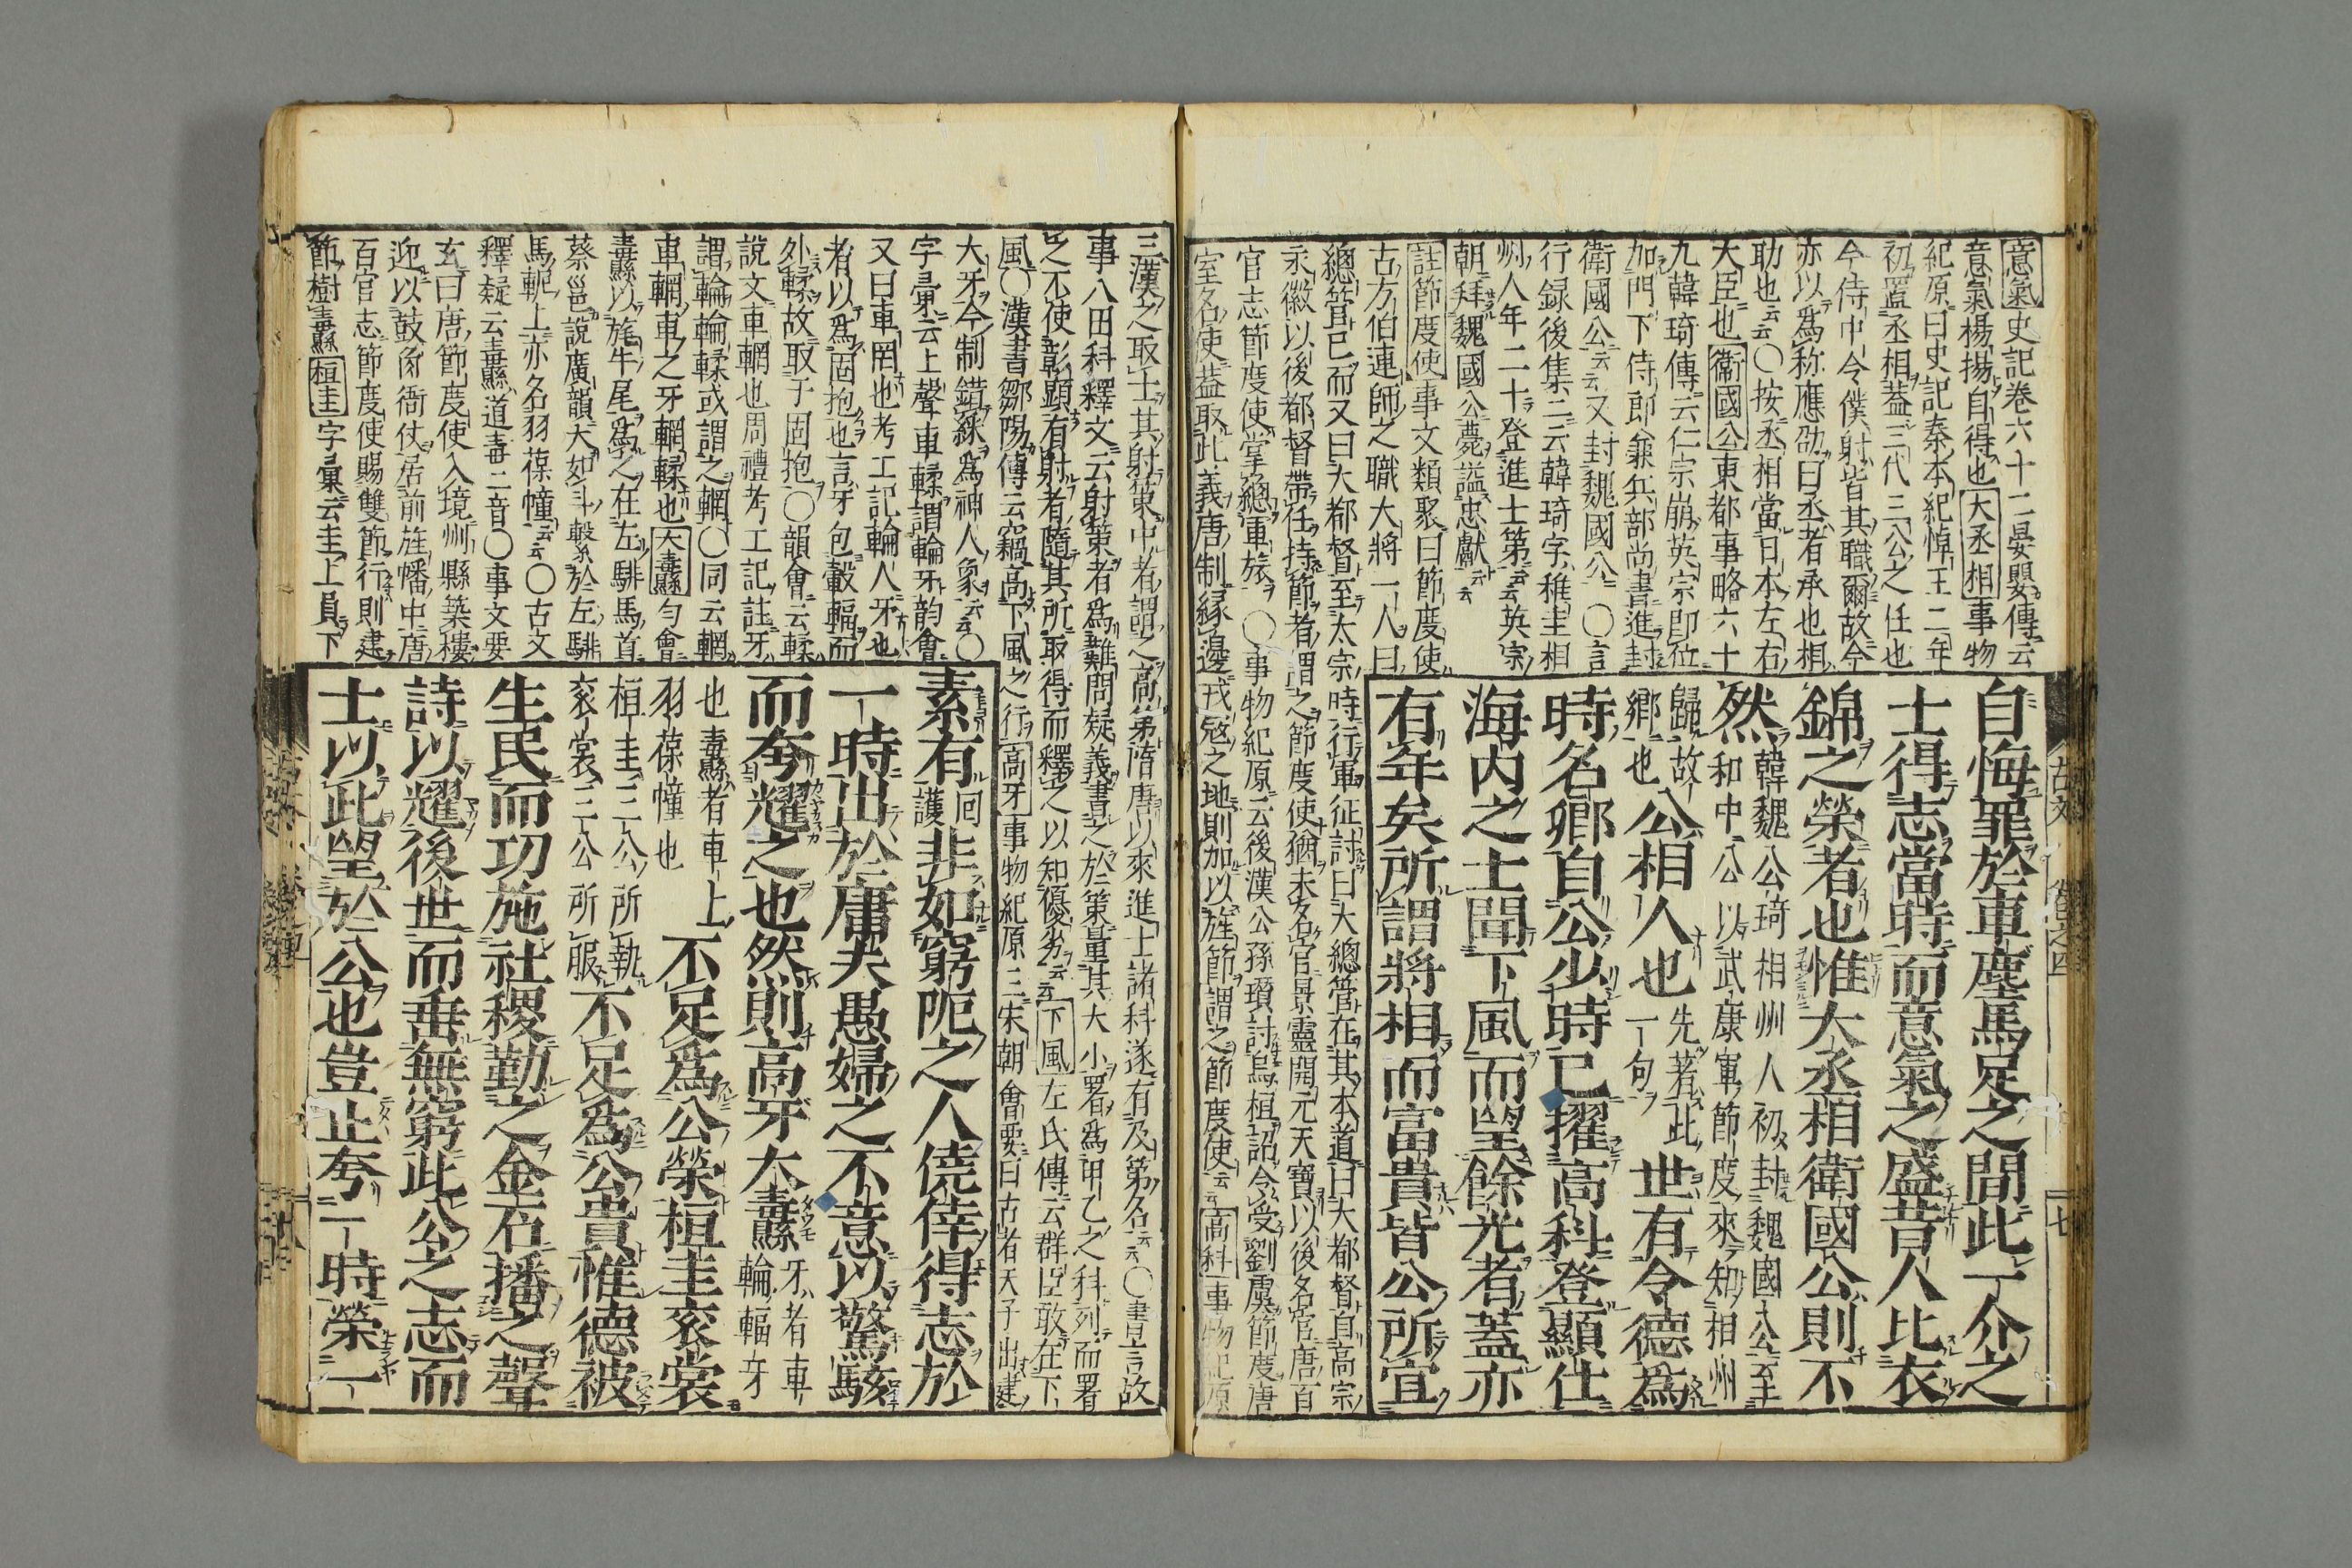 意氣史記卷六十二晏嬰傳云
意氣楊揚自得也大丞相事物
紀原曰史記秦本紀悼王二年
初置丞相蓋三代三公之任也
今侍中令僕射皆其職爾故今
亦以為称應劭曰丞者承也相
助也云云〇按丞相當日本左右
大臣也衛國公東都事略六十
九韓琦傳云仁宗崩英宗即位
加門下侍郎兼兵部尚書進封
衛國公云云又封魏國公〇言
行録後集二云韓琦字稚圭相
州人年二十登進士第云云英宗
朝拜魏國公薨謚忠獻云云
註節度使事文類聚曰節度使
古方伯連師之職大將一人曰
總管已而又曰大都督至太宗時行軍征討曰大總管在其本道曰大都督自高宗
永徽以後都督帶任持節者謂之節度使猶未名官景靈開元天寶以後名官唐百
官志節度使掌總軍旅〇事物紀原云後漢公孫瓚討烏桓詔令受劉虞節度唐
室名使蓋取此義唐制縁邊戎冦之地則加以旌節謂之節度使云云高科事物紀原
自悔罪於車塵馬足之間此一介之
士得志當時而意氣之盛昔人比衣
錦之榮者也惟大丞相衛國公則不
然韓魏公琦相州人初封魏國公至
和中公以武康軍節度來知相州
歸故
鄉也公相人也先著此
一句世有令德為
時名鄉自公少時已擢高科登顯仕
海内之士聞下風而望餘光者蓋亦
有年矣所謂將相而富貴皆公所宜
古文 卷之四 十七
三漢之取士其射策中者謂之高第隋唐以來進士諸科遂有及第名云云〇書言故
事八田科釋文云射策者為難問疑義書之於策量其大小署為甲乙之科列而署
之不使彰顯有射者隨其所取得而釋之以知優劣云云下風左氏傳云群臣敢在下
風〇漢書鄒陽傳云竊高下風之行高牙事物紀原三宋朝會要曰古者天子出建
大牙今制錯綵為神人象云云〇
字彙云上聲車輮謂輪牙韵會
又曰車罔也考工記輪人牙也
者以為固抱也言牙包轂輻而
外輮故取于固抱〇韻會云輮
說文車輞也周禮考工記註牙
謂輪輪輮或謂之輞〇同云輞
車輞車之牙輞輮也大纛勻會
纛以旄牛尾為之在左騑馬首
蔡邕說廣韻大如斗繫於左騑
馬軛上亦名羽葆幢云云〇古文
釋疑云纛道毒二音〇事文要
玄曰唐節度使入境州縣築樓
迎以鼓角衙仗居前旌幡中唐
百官志節度使賜雙節行則建
節樹纛桓圭字彙云圭上員下
素有回
護非如窮阨之人僥倖得志於
一時出於庸夫愚婦之不意以驚駭
而夸耀之也然則高牙大纛牙者車
輪輻牙
也纛者車上
羽葆幢也不足為公榮桓圭衮裳
桓圭三公所執
衮裳三公所服不足為公貴惟德被
生民而功施社稷勤之金石播之聲
詩以耀後世而垂無窮此公之志而
士以此望於公也豈止夸一時榮一